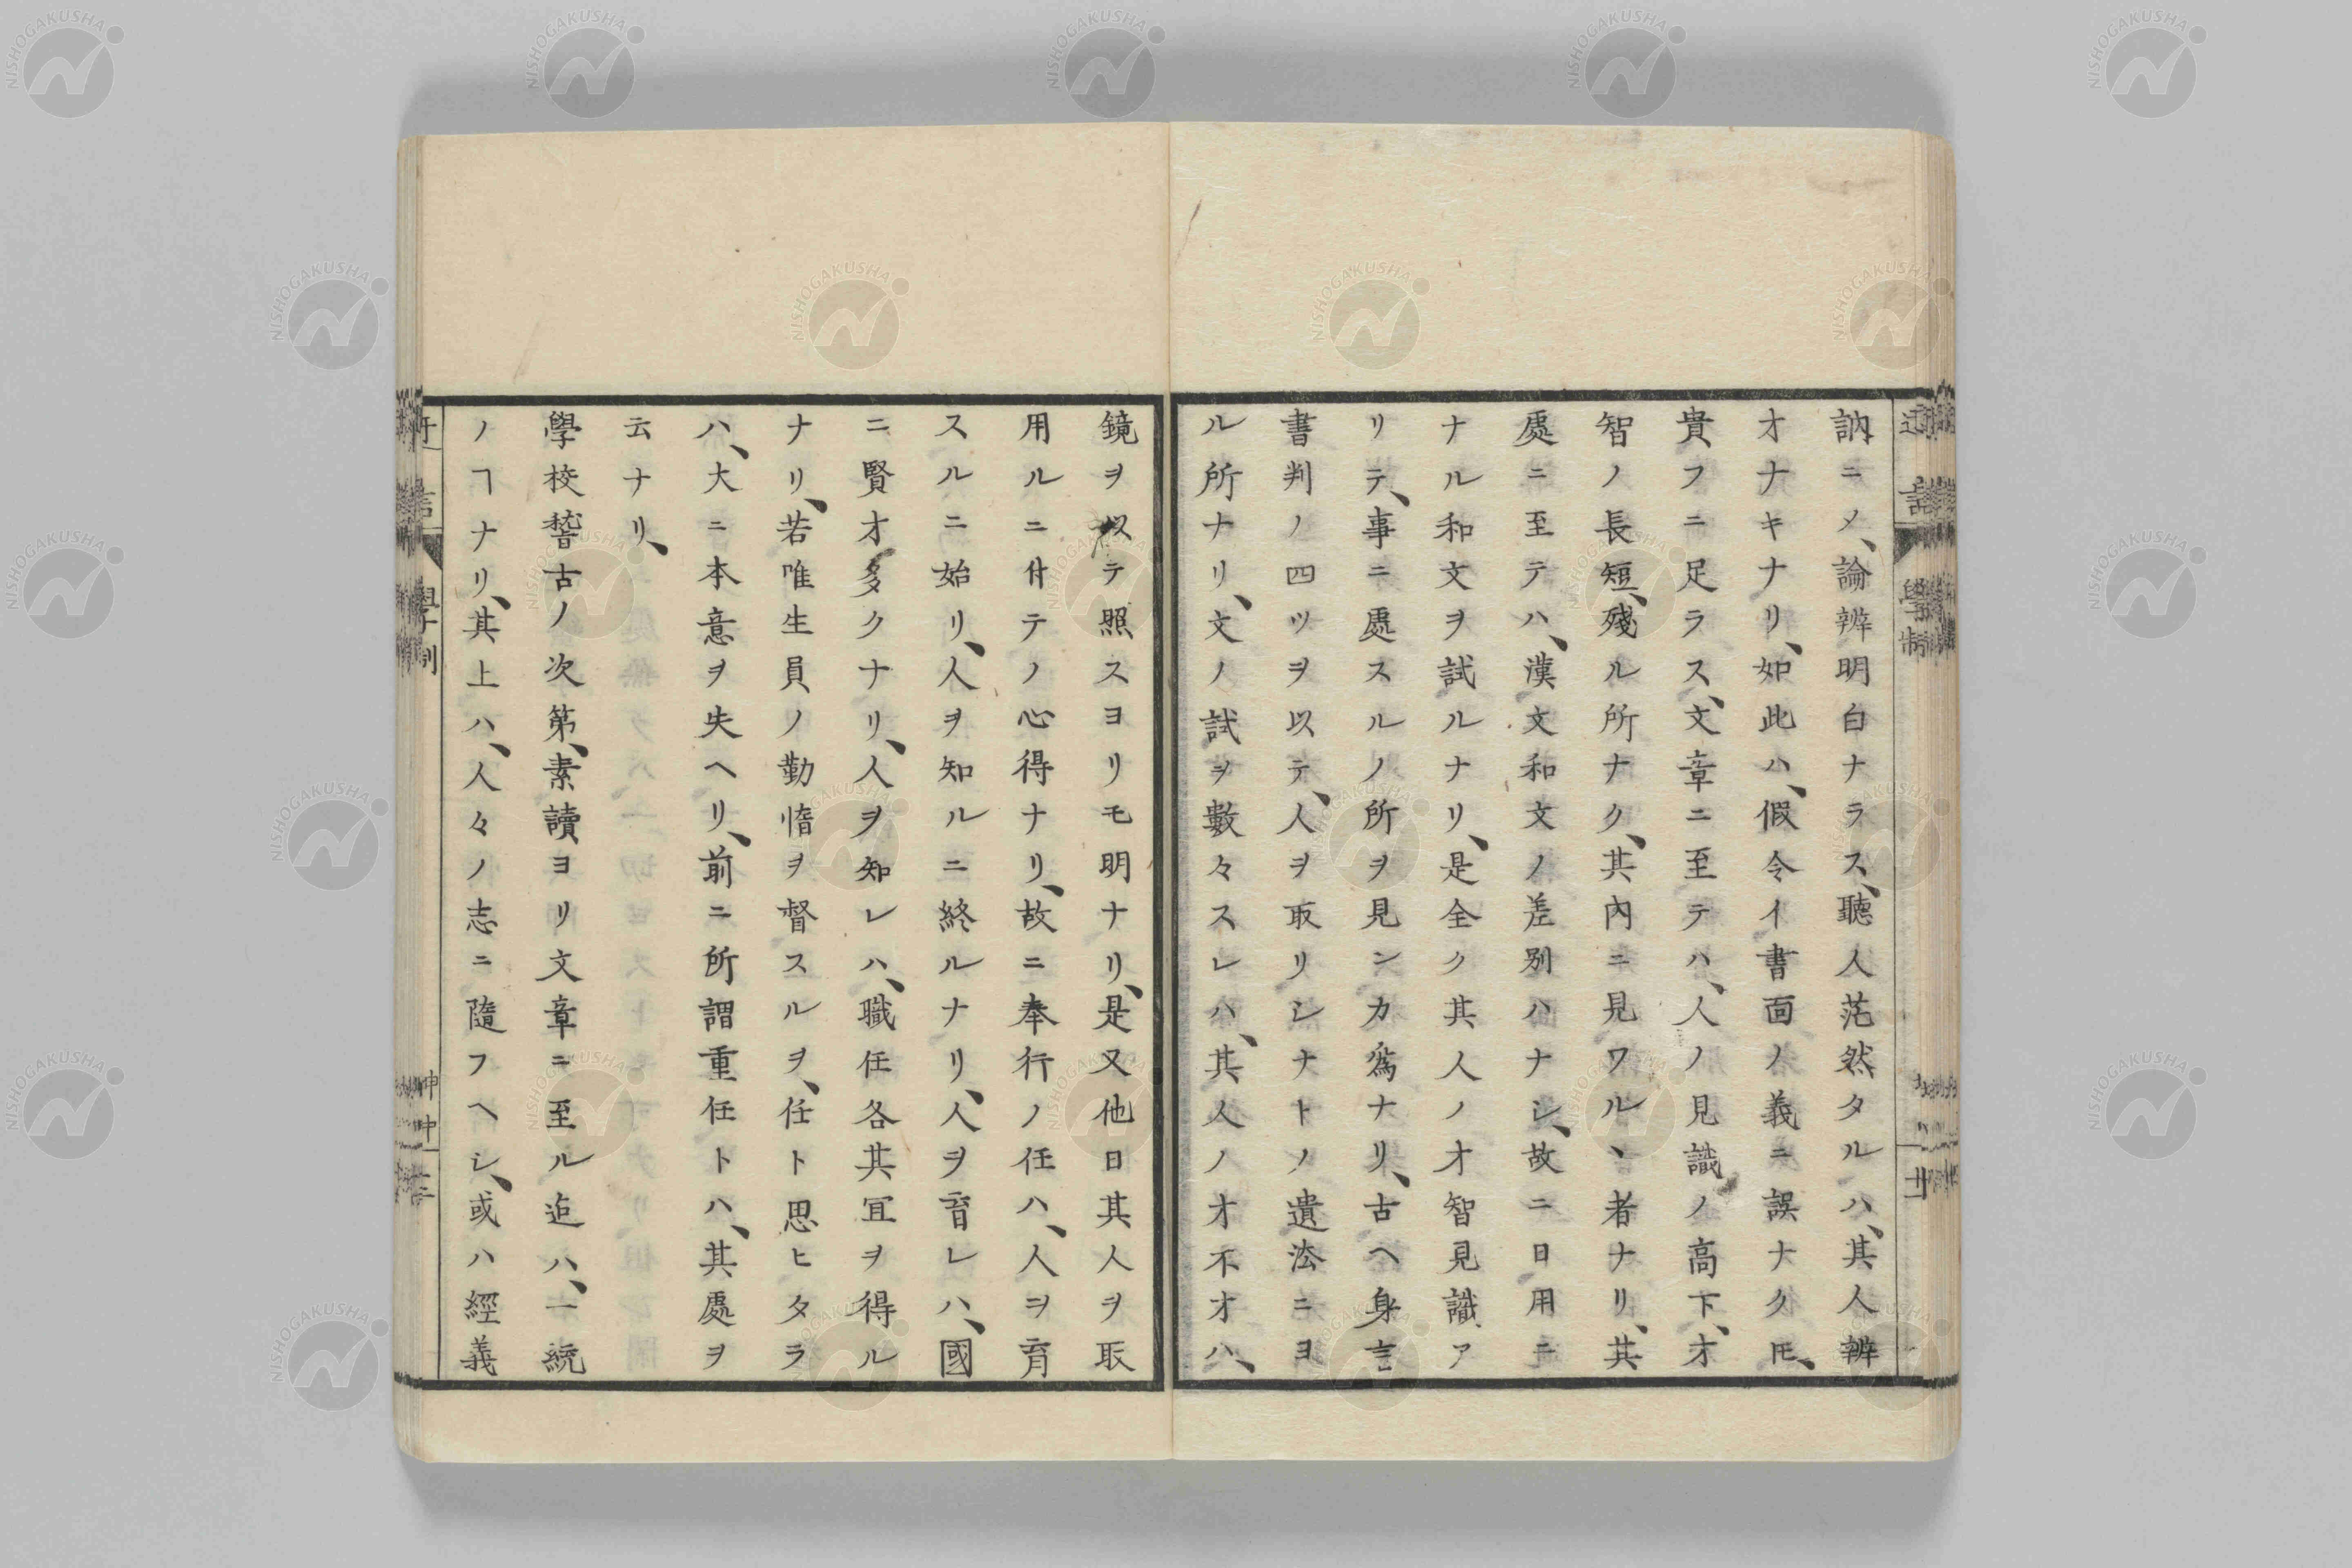 訥ニメ、論辨明白ナラス、聽人茫然タルハ、其人辨
才ナキナリ、如此ハ、假令イ書面ノ義ニ誤ナク𪜈、
貴フニ足ラス、文章ニ至テハ、人ノ見識ノ高下、才
智ノ長短、殘ル所ナク、其內ニ見ワルヽ者ナリ、其
處ニ至テハ、漢文和文ノ差別ハナシ、故ニ日用ニ
ナル和文ヲ試ルナリ、是全ク其人ノ才智見識ア
リテ、事ニ處スルノ所ヲ見ンカ爲ナリ、古ヘ身言
書判ノ四ツヲ以テ、人ヲ取リシナトノ遺法ニヨ
ル所ナリ、文ノ試ヲ數々スレハ、其人ノ才不才ハ、
鏡ヲ以テ照スヨリモ明ナリ、是又他日其人ヲ取
用ルニ付テノ心得ナリ、故ニ奉行ノ任ハ、人ヲ育
スルニ始リ、人ヲ知ルニ終ルナリ、人ヲ育レハ、國
ニ賢才多クナリ、人ヲ知レハ、職任各其宜ヲ得ル
ナリ、若唯生員ノ勤惰ヲ督スルヲ、任ト思ヒタラ
ハ、大ニ本意ヲ失ヘリ、前ニ所謂重任トハ、其處ヲ
云ナリ、
學校稽古ノ次第、素讀ヨリ文章ニ至ル迄ハ、一統
ノヿナリ、其上ハ、人々ノ志ニ隨フヘシ、或ハ經義